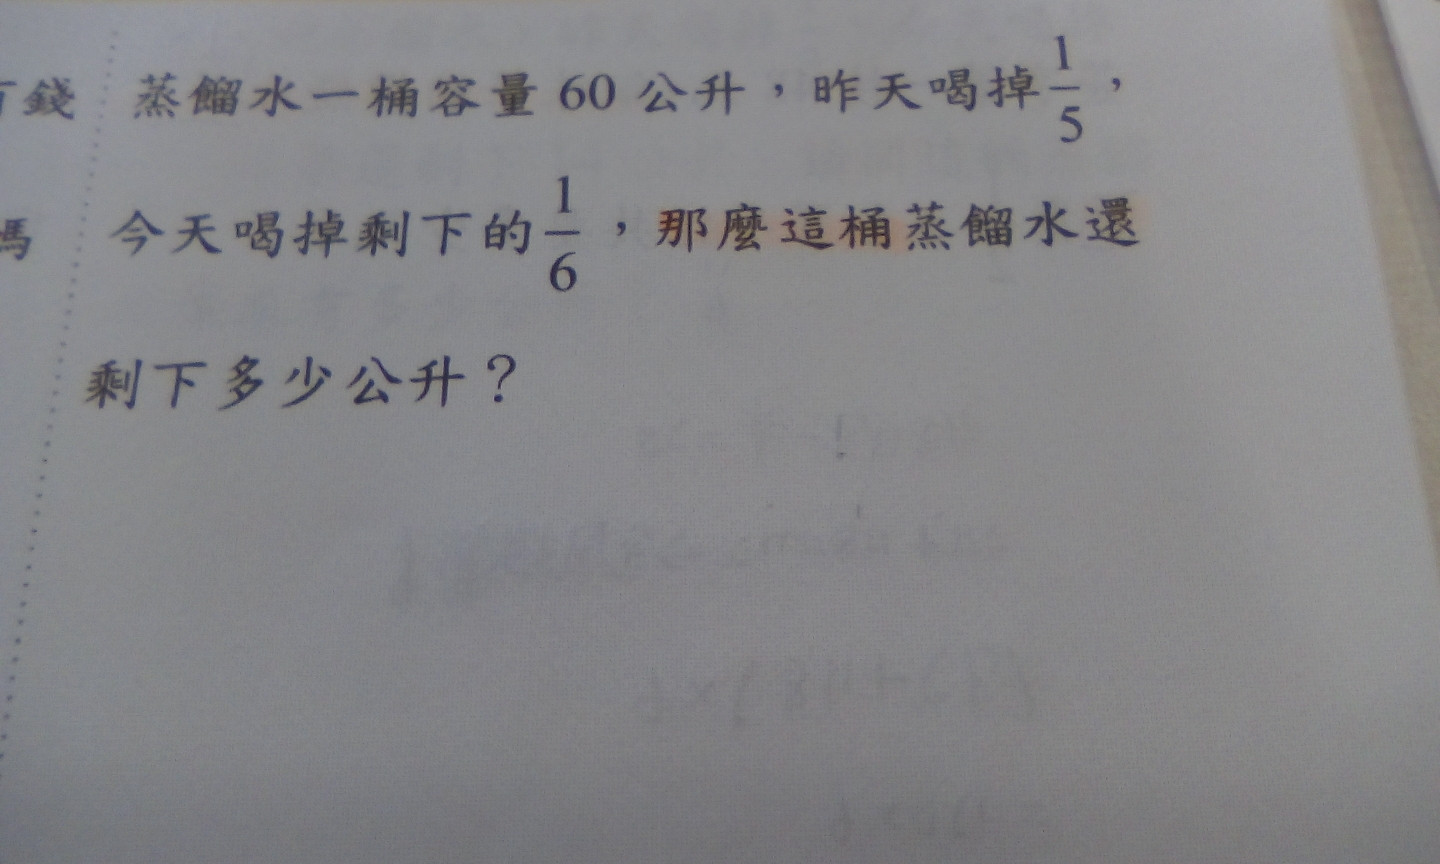 錢 蒸餾水一桶容量 60 公升，昨天喝掉1/5，
今天喝掉剩下的1/6，那麼這桶蒸餾水還
剩下多少公升？